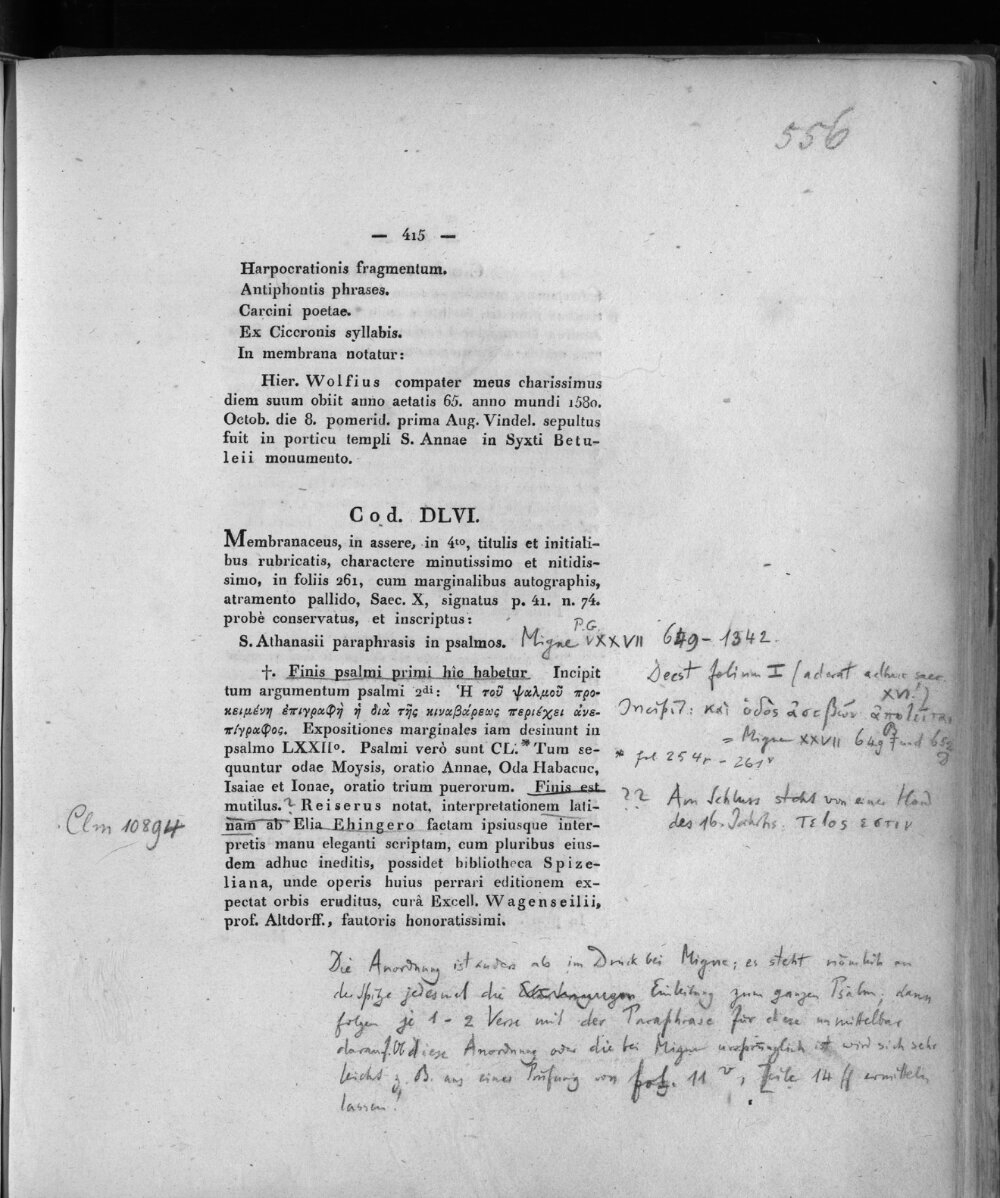 556
— 415 —
Harpocrationis fragmentum.
Antiphontis phrases.
Carcini poetae.
Ex Ciceronis syllabis.
In membrana notatur:
Hier. Wolfius compater meus charissimus
diem suum obiit anno aetatis 65. anno mundi 1580.
Octob. die 8. pomerid. prima Aug. Vindel. sepultus
fuit in porticu templi S. Annae in Syxti Betu-
leii monumento.
Cod. DLVI.
Membranaceus, in assere, in 4to, titulis et initiali-
bus rubricatis, charactere minutissimo et nitidis-
simo, in foliis 261, cum marginalibus autographis,
atramento pallido, Saec. X, signatus p. 41. n. 74.
probè conservatus, et inscriptus:
S. Athanasii paraphrasis in psalmos. Migne P.G. XXVII 649-1342.
†. Finis psalmi primi hic habetur Incipit
tum argumentum psalmi 2di: Ἡ τοῦ ψαλμοῦ προ-
κειμένη ἐπιγραφὴ ἡ διὰ τῆς κιναβάρεως περιέχει ἀνε-
πίγραφος. Expositiones marginales iam desinunt in
psalmo LXXIIo. Psalmi verò sunt CL.* Tum se-
quuntur odae Moysis, oratio Annae, Oda Habacuc,
Isaiae et Ionae, oratio trium puerorum. Finis est
mutilus.? Reiserus notat, interpretationem lati-
nam ab Elia Ehingero factam ipsiusque inter-
pretis manu eleganti scriptam, cum pluribus eius-
dem adhuc ineditis, possidet bibliotheca Spize-
liana, unde operis huius perrari editionem ex-
pectat orbis eruditus, curâ Excell. Wagenseilii,
prof. Altdorff., fautoris honoratissimi.
Deest folium I (aderat adhuc saec.
XVI!)
Incipit: καὶ ὁδὸς ἀσεβῶν ἀπολεῖται
= Migne XXVII 649 und 65
* fol 254r - 261v
?? Am Schluss steht von einer Hand
des 16. Jahrhs. τελος εστιν
Clm 10894
Die Anordnung ist anders als im Druck bei Migne; es steht nämlich an
der Spitze jedesmal die Einleitung zum ganzen Psalm; dann
folgen je 1-2 Verse mit der Paraphrase für diese unmittelbar
darauf. Ob diese Anordnung oder die bei Migne ursprünglich ist wird sich sehr
leicht z. B. aus einer Prüfung von fol. 11 v, Zeile 14 ff ermitteln
lassen.